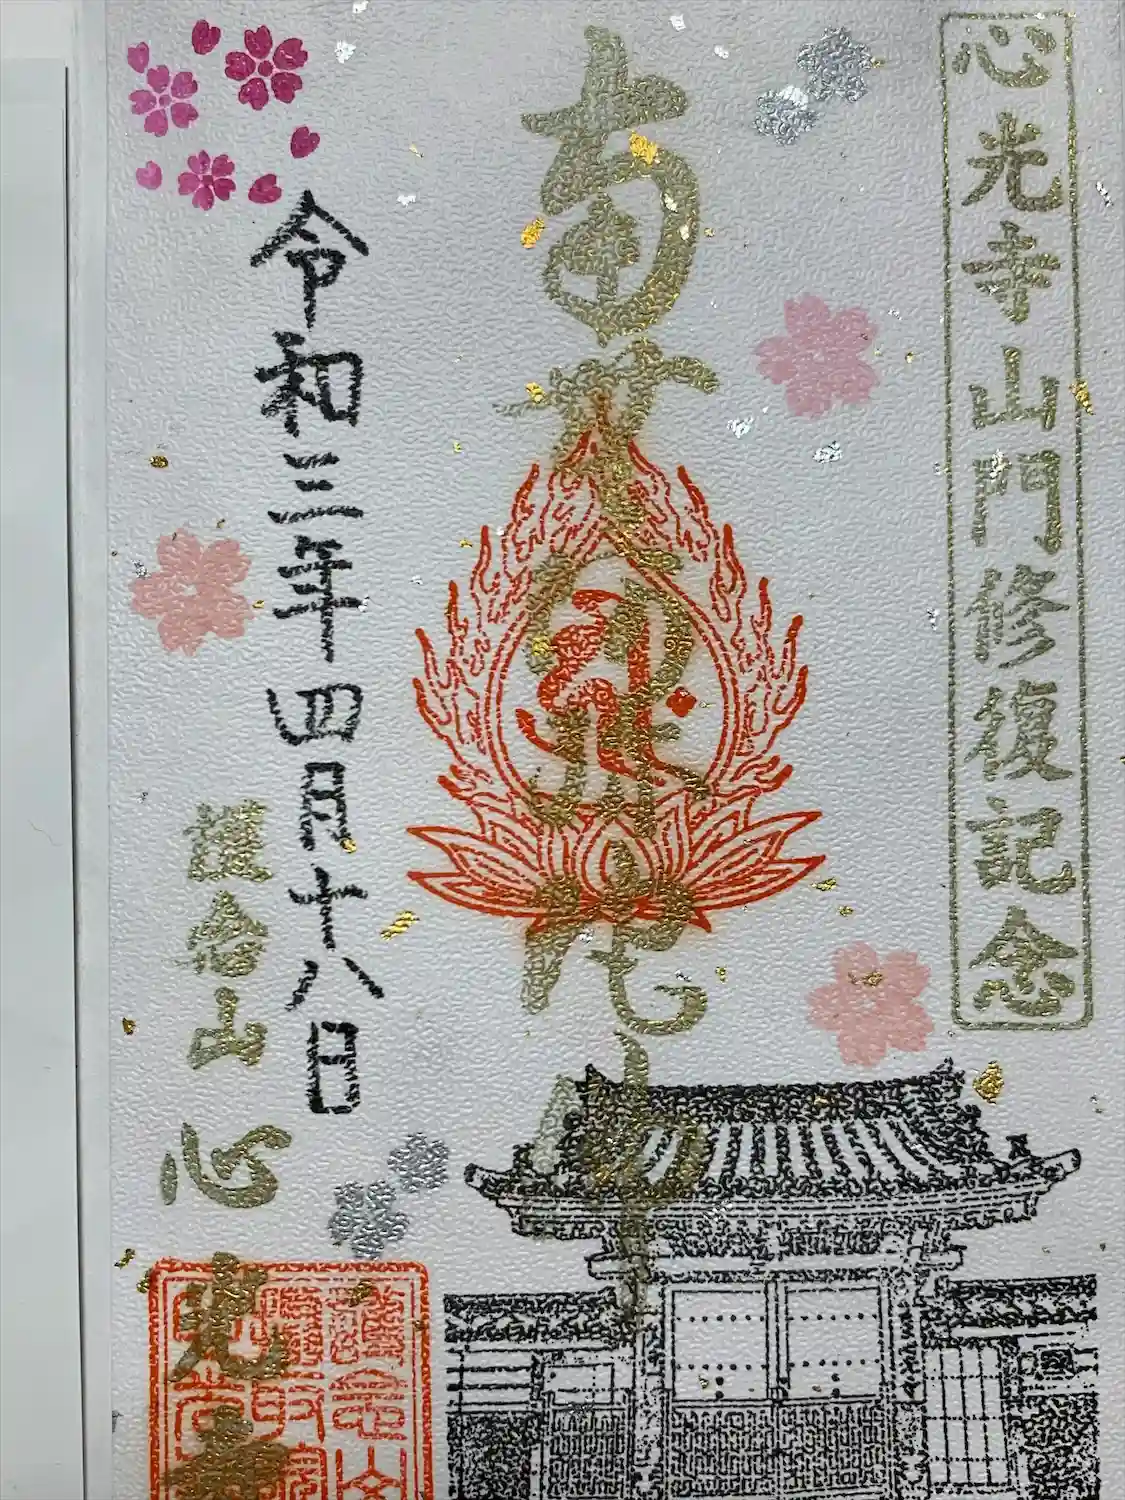 心光寺山門修復記念
南無阿弥陀佛
令和三年四月十八日
山 心光寺